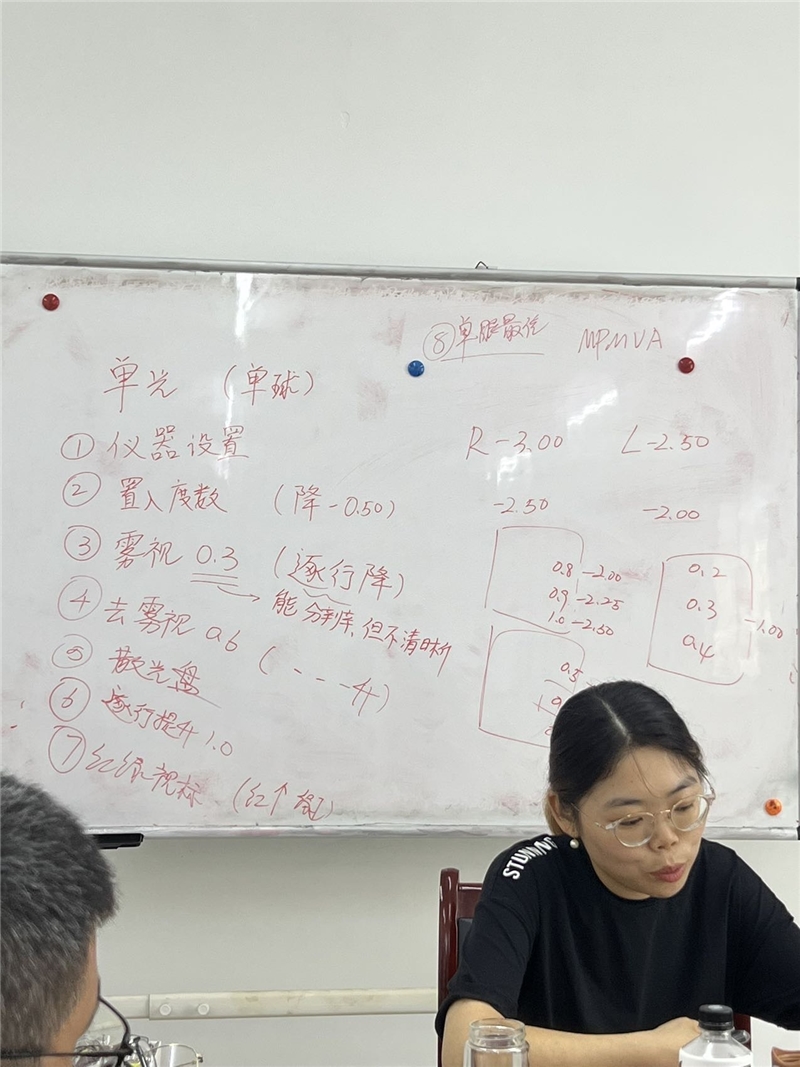 ⑧单眼最佳 MPMVA
单光 (单球)
①仪器设置
②置入度数 (降-0.50)
③雾视 0.3 (逐行降)
能分辨,但不清晰
④去雾视 0.6 (---升)
⑤散光盘
⑥逐行提升1.0
⑦红绿视标
R-3.00 L-2.50
-2.50 -2.00
0.8 -2.00
0.9 -2.25
1.0 -2.50
0.5
0.2
0.3
0.4
-1.00
STUNN